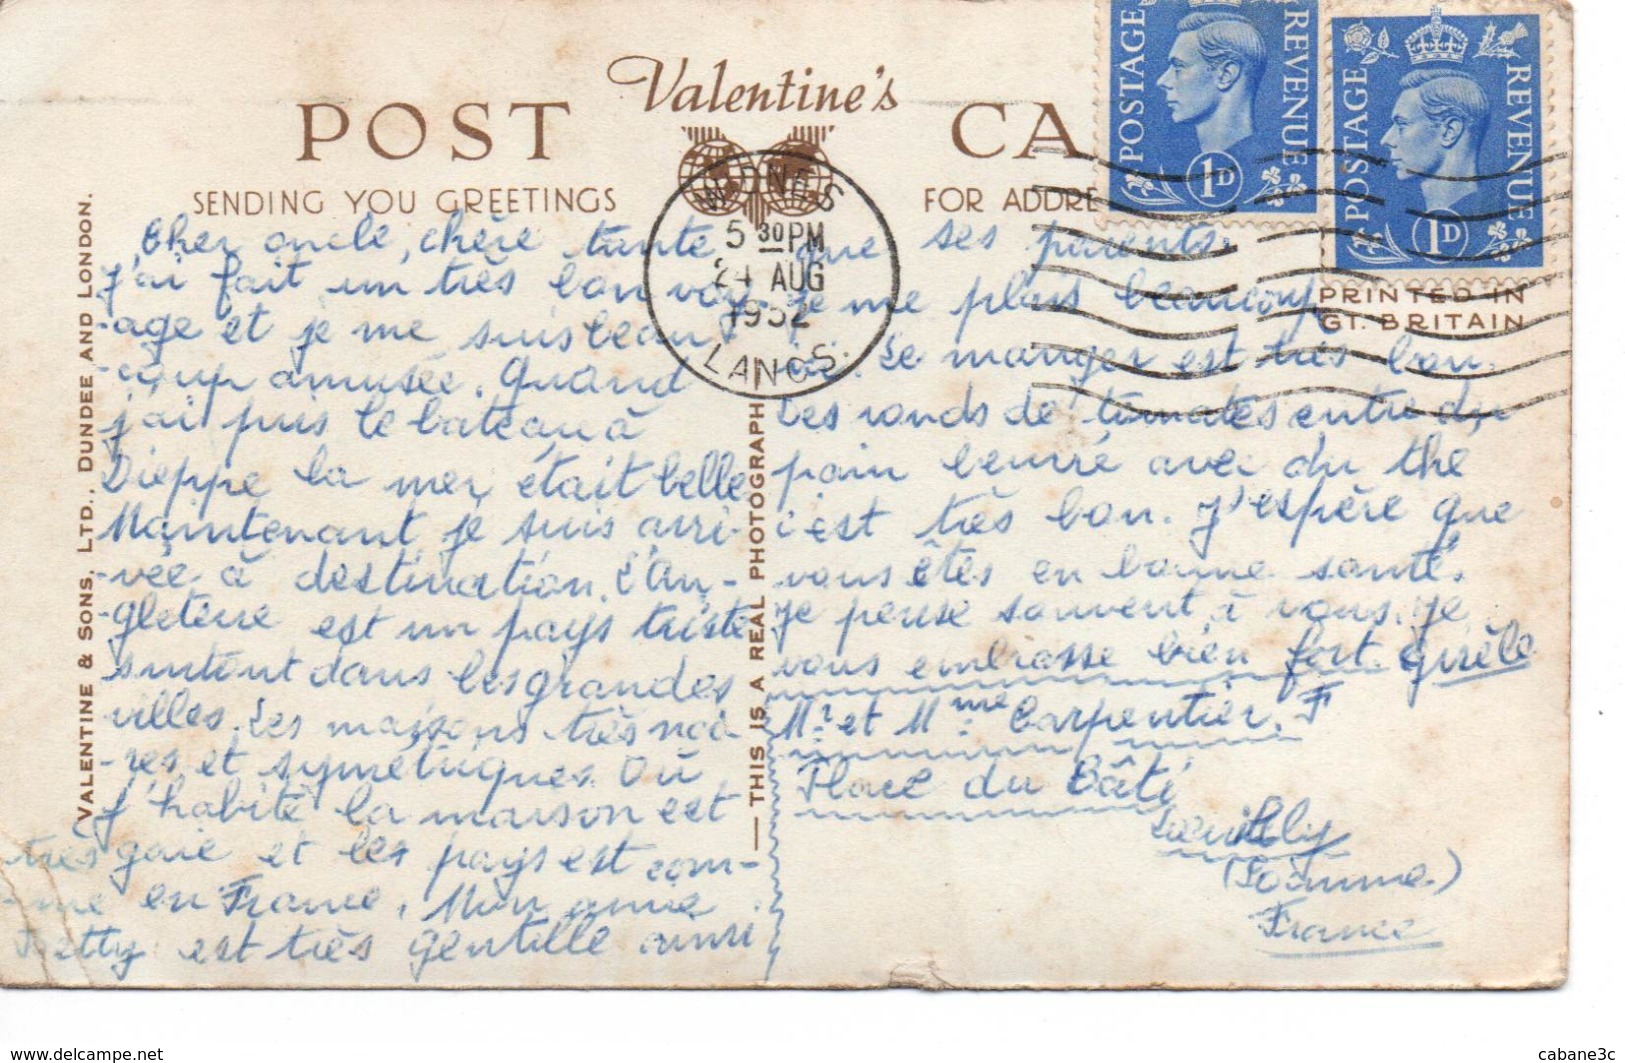 Valentine's
POST CA
SENDING YOU GREETINGS FOR ADDRE
POSTAGE REVENUE 1D
POSTAGE REVENUE 1D
PRINTED IN
GT. BRITAIN
5 30 PM
24 AUG
1952
LANCS.
VALENTINE & SONS, LTD., DUNDEE AND LONDON.
— THIS IS A REAL PHOTOGRAPH —
Cher oncle, chère tante
J'ai fait un très bon voy-
-age et je me suis beau
-coup amusée. Quand
j'ai pris le bateau à
Dieppe la mer était belle
Maintenant je suis arri-
-vée à destination. L'An-
-gleterre est un pays triste
surtout dans les grandes
villes. Les maisons très noi
-res et symétriques. Où
j'habite la maison est
très gaie et les pays est com-
-me en France. Mon amie
Betty est très gentille ainsi
que ses parents.
Je me plais beaucoup
ici. Le manger est très bon.
Des ronds de tomates entre du
pain beurré avec du the
c'est très bon. J'espère que
vous êtes en bonne santé.
Je pense souvent à vous. Je
vous embrasse bien fort. Gisèle
Mr et Mme Carpentier. F
Place du Bâti
(Somme)
France
delcampe.net
cabane3c